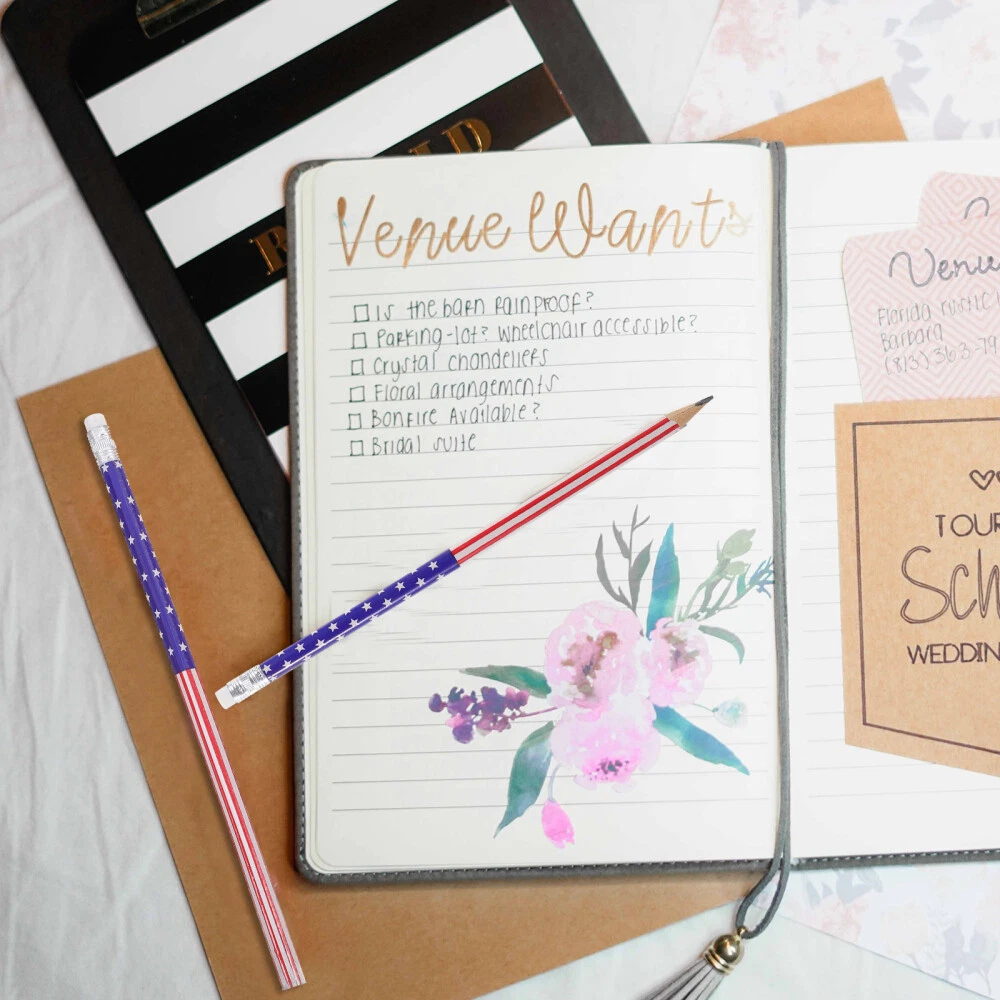 Venue Wants
Is the barn rainproof?
Parking-lot? Wheelchair accessible?
Crystal chandeliers
Floral arrangements
Bonfire Available?
Bridal suite
Florida rustic
Barbara
(813) 363-79
WEDDIN